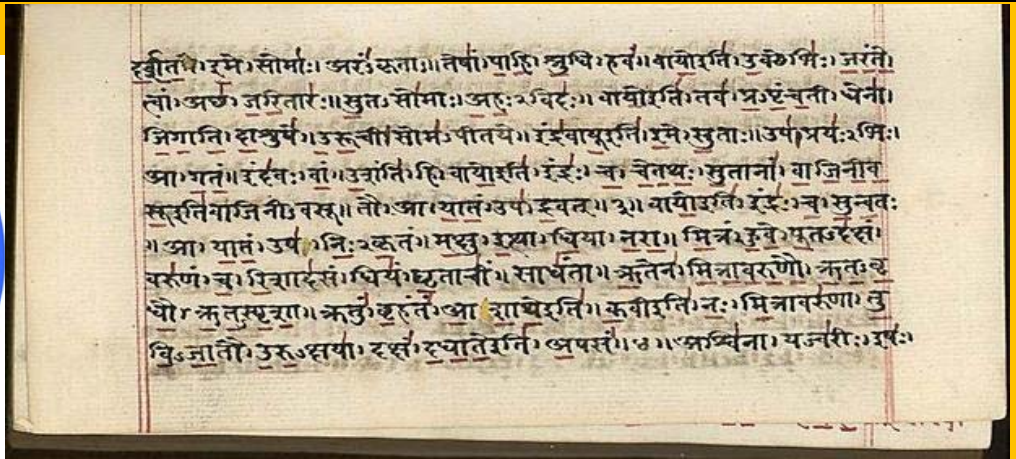 दर्शत। इमे। सोमाः। अरंऽकृताः॥ तेषां। पाहि। श्रुधि। हवं॥ वायोइति। उक्थेभिः। जरंते।
त्वां। अच्छ। जरितारः॥ सुतऽसोमाः। अहःऽविदः॥ वायोइति। तव। प्रऽपृंचती। धेना।
जिगाति। दाशुषे॥ उरूची। सोमऽपीतये॥ इंद्रवायूइति। इमे। सुताः॥ उप। प्रयःऽभिः।
आ। गतं॥ इंदवः। वां। उशंति। हि। वायोइति। इंद्रः। च। चेतथः। सुतानां। वाजिनीव
सूइतिवाजिनीऽवसू॥ तौ। आ। यातं। उप। द्रवत्॥ ३॥ वायोइति। इंद्रः। च। सुन्वतः
॥ आ। यातं। उप। निःऽकृतं॥ मक्षु। इत्था। धिया। नरा॥ मित्रं। हुवे। पूतऽदक्षं।
वरुणं। च। रिशादसं। धियं। घृताचीं। साधंता॥ ऋतेन। मित्रावरुणौ। ऋतऽवृ
धौ। ऋतऽस्पृशा॥ क्रतुं। बृहंतं। आशाथेइति॥ कवीइति। नः। मित्रावरुणा। तु
विऽजातौ। उरुऽक्षया। दक्षं। दधातेइति। अपसं॥ ४॥ अश्विना। यज्वरीः। इषः।